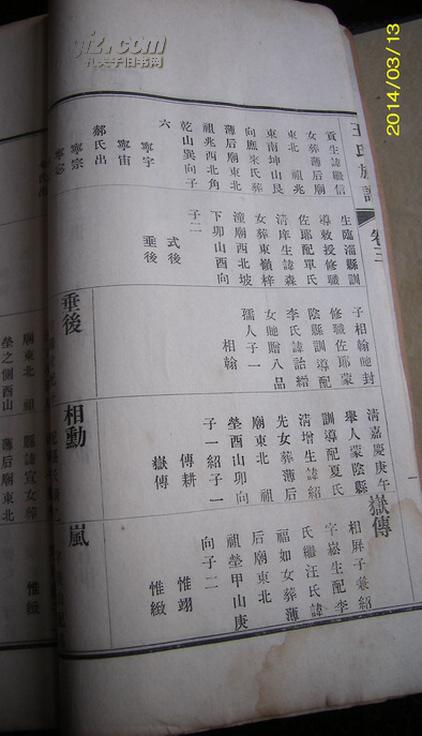 2014/03/13
王氏族譜
卷三
貢生諱繼信
女葬薄后廟
東北 祖兆
東南坤山艮
向應來氏葬
薄后廟東北
祖兆西北角
乾山巽向子
六
寧宇
寧宙
郝氏出
寧宗
寧宓
生臨淄縣訓
導教授修職
佐郎配單氏
清庠生諱森
女葬東嶺梓
潼廟西北坡
下卯山酉向
子二
式後
垂後
垂後
子相翰貤封
修職佐郎蒙
陰縣訓導配
李氏諱詒繒
女貤贈八品
孺人子一
相翰
相勳
清嘉慶庚午
舉人蒙陰縣
訓導配夏氏
清增生諱紹
先女葬薄后
廟東北 祖
塋酉山卯向
子一紹子一
傳耕
嶽傳
嶽傳
相屏子兼紹
字崧生配李
氏繼汪氏諱
福如女葬薄
后廟東北
祖塋甲山庚
向子二
惟翊
惟緻
嵐
廟東北 祖
塋之側酉山
縣諱宣女葬
薄后廟東北
惟緻